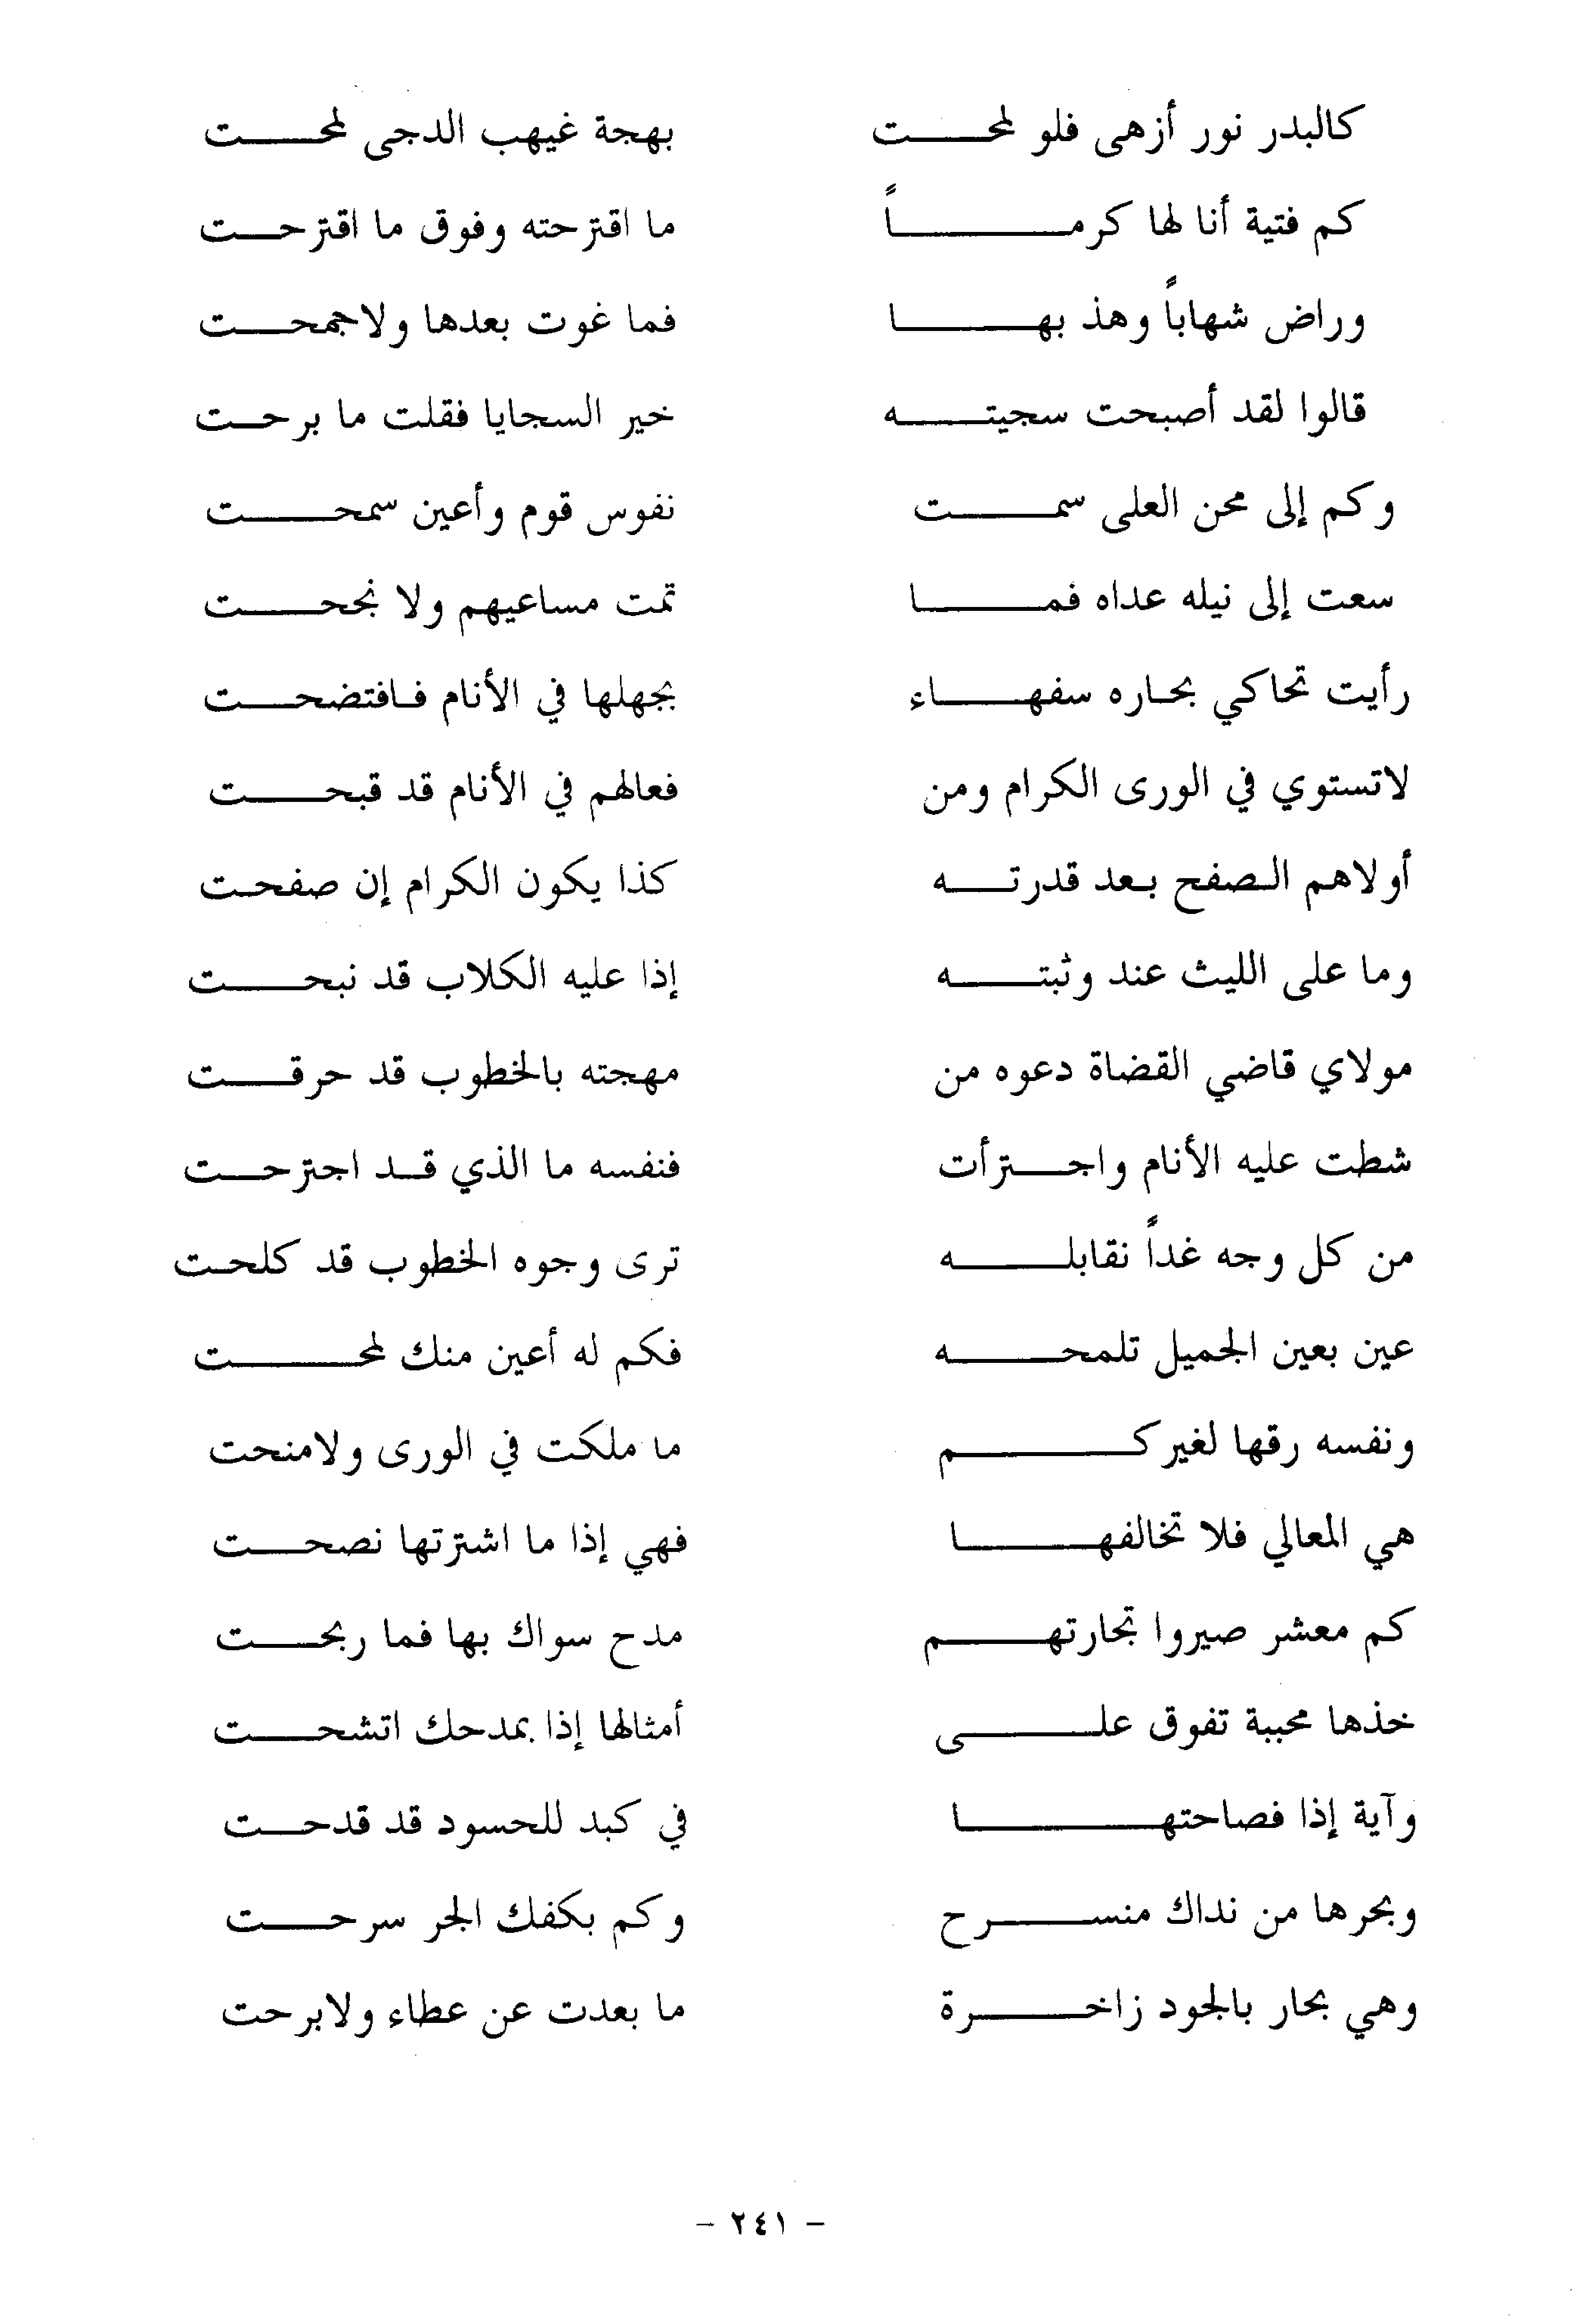 كالبدر نور أزهى فلو لمحت بهجة غيهب الدجى لمحت
كم فتية أنا لها كرماً ما اقترحته وفوق ما اقترحت
وراض شهاباً وهذ بها فما غوت بعدها ولاجمحت
قالوا لقد أصبحت سجيته خير السجايا فقلت ما برحت
وكم إلى محن العلى سمت نفوس قوم وأعين سمحت
سعت إلى نيله عداه فما تمت مساعيهم ولا نجحت
رأيت تحاكي بحاره سفهاء بجهلها في الأنام فافتضحت
لاتستوي في الورى الكرام ومن فعالهم في الأنام قد قبحت
أولاهم الصفح بعد قدرته كذا يكون الكرام إن صفحت
وما على الليث عند وثبته إذا عليه الكلاب قد نبحت
مولاي قاضي القضاة دعوه من مهجته بالخطوب قد حرقت
شطت عليه الأنام واجترأت فنفسه ما الذي قد اجترحت
من كل وجه غداً نقابله ترى وجوه الخطوب قد كلحت
عين بعين الجميل تلمحه فكم له أعين منك لمحت
ونفسه رقها لغيركم ما ملكت في الورى ولامنحت
هي المعالي فلا تخالفها فهي إذا ما اشترتها نصحت
كم معشر صيروا تجارتهم مدح سواك بها فما ربحت
خذها محببة تفوق على أمثالها إذا بمدحك اتشحت
وآية إذا فصاحتها في كبد للحسود قد قدحت
وبحرها من نداك منسرح وكم بكفك الجر سرحت
وهي بحار بالجود زاخرة ما بعدت عن عطاء ولابرحت
- ٢٤١ -